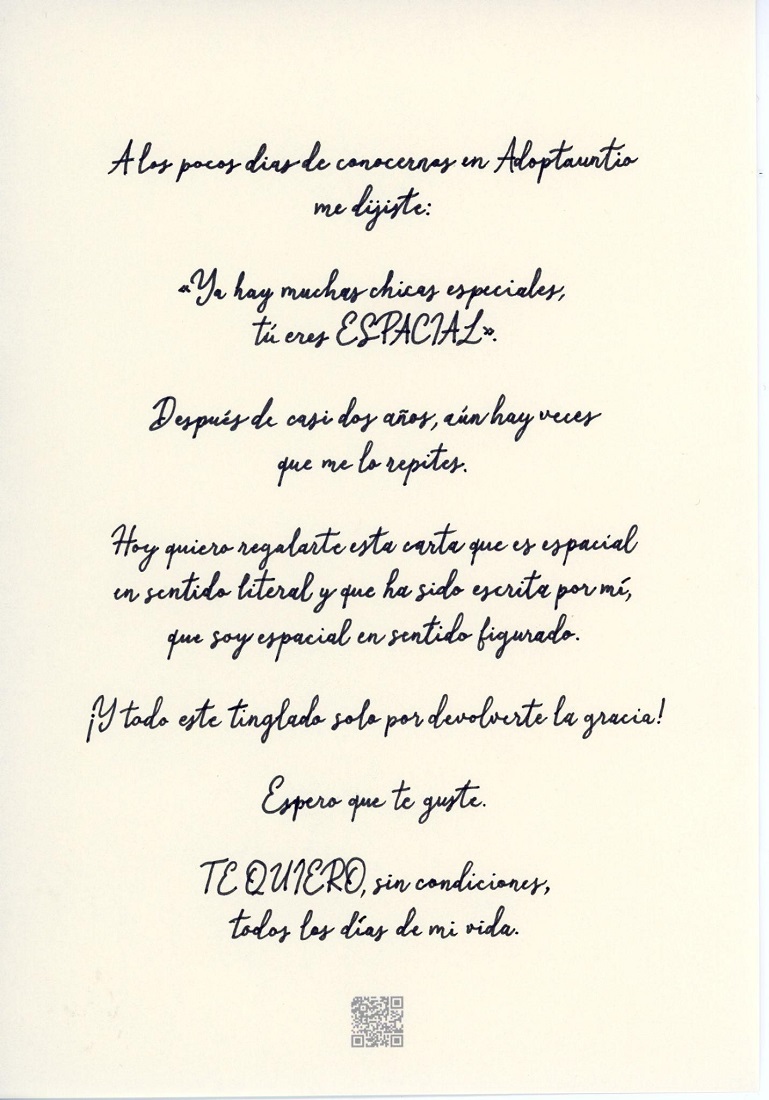 A los pocos dias de conocernos en Adoptauntio
me dijiste:
«Ya hay muchas chicas especiales,
tú eres ESPACIAL».
Después de casi dos años, aún hay veces
que me lo repites.
Hoy quiero regalarte esta carta que es espacial
en sentido literal y que ha sido escrita por mí,
que soy espacial en sentido figurado.
¡Y todo este tinglado solo por devolverte la gracia!
Espero que te guste.
TE QUIERO, sin condiciones,
todos los días de mi vida.